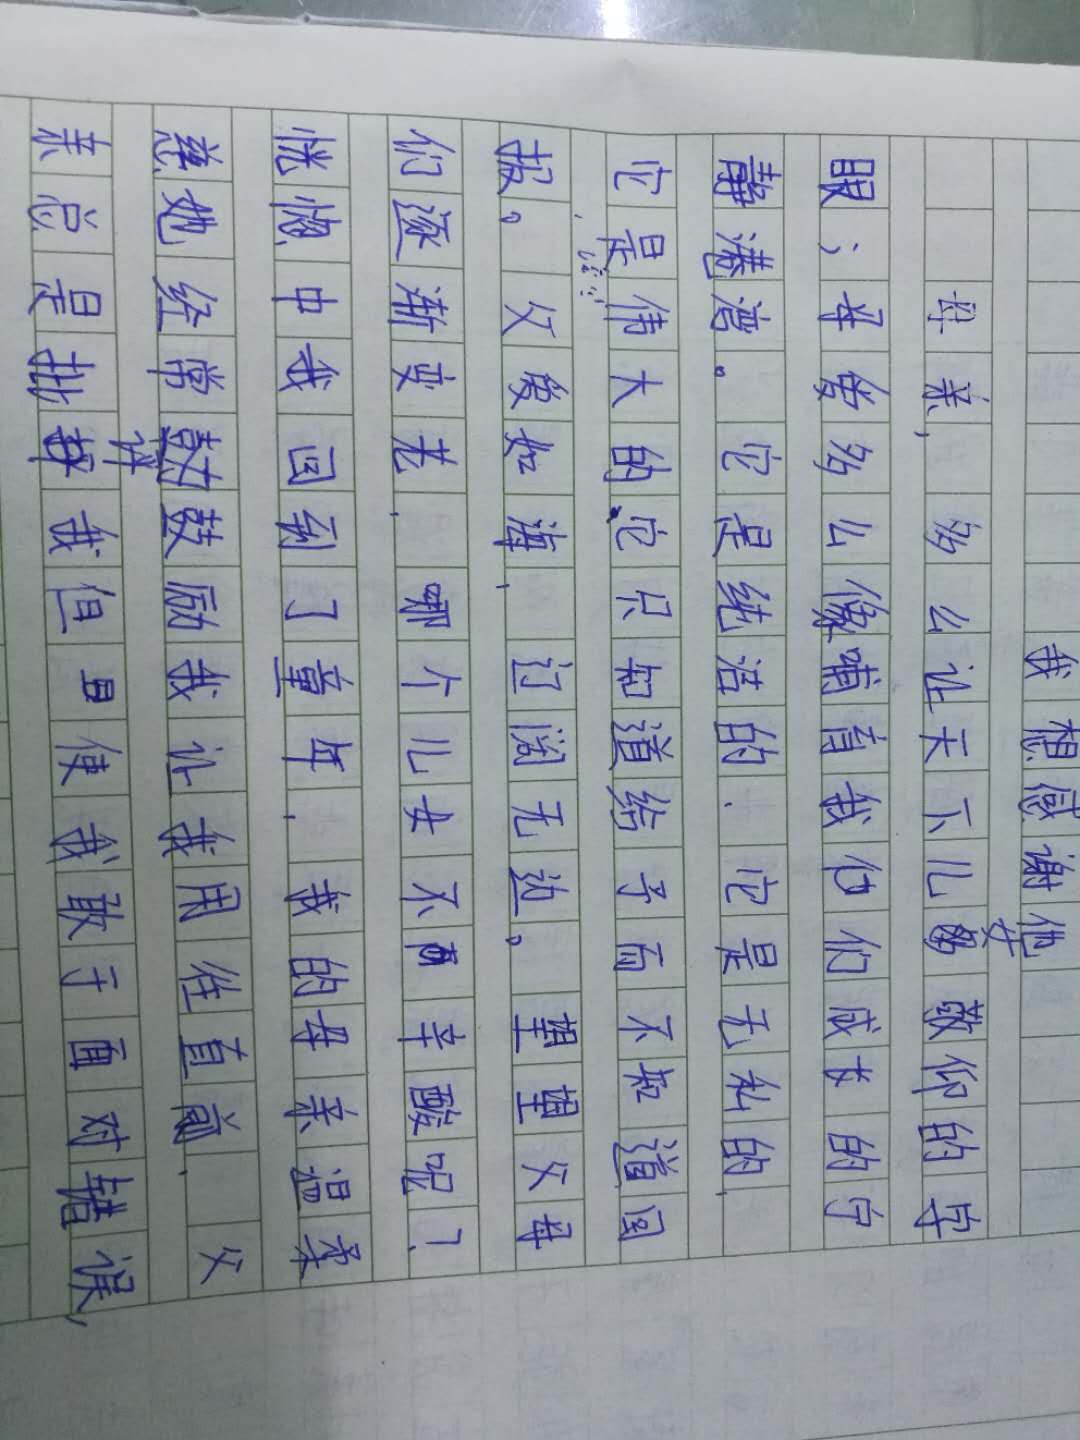 我想感谢他
母亲，多么让天下儿女敬仰的字
眼；母爱多么像哺育我们成才的宁
静港湾。它是纯洁的，它是无私的，
它是伟大的它只知道给予而不知道回
报。父爱如海，辽阔无边。望望父母
们逐渐变老，哪个儿女不辛酸呢？
恍惚中我回到了童年，我的母亲温柔
慈她经常鼓励我让我用往直前，父
亲总是批评我但是使我敢于面对错误，